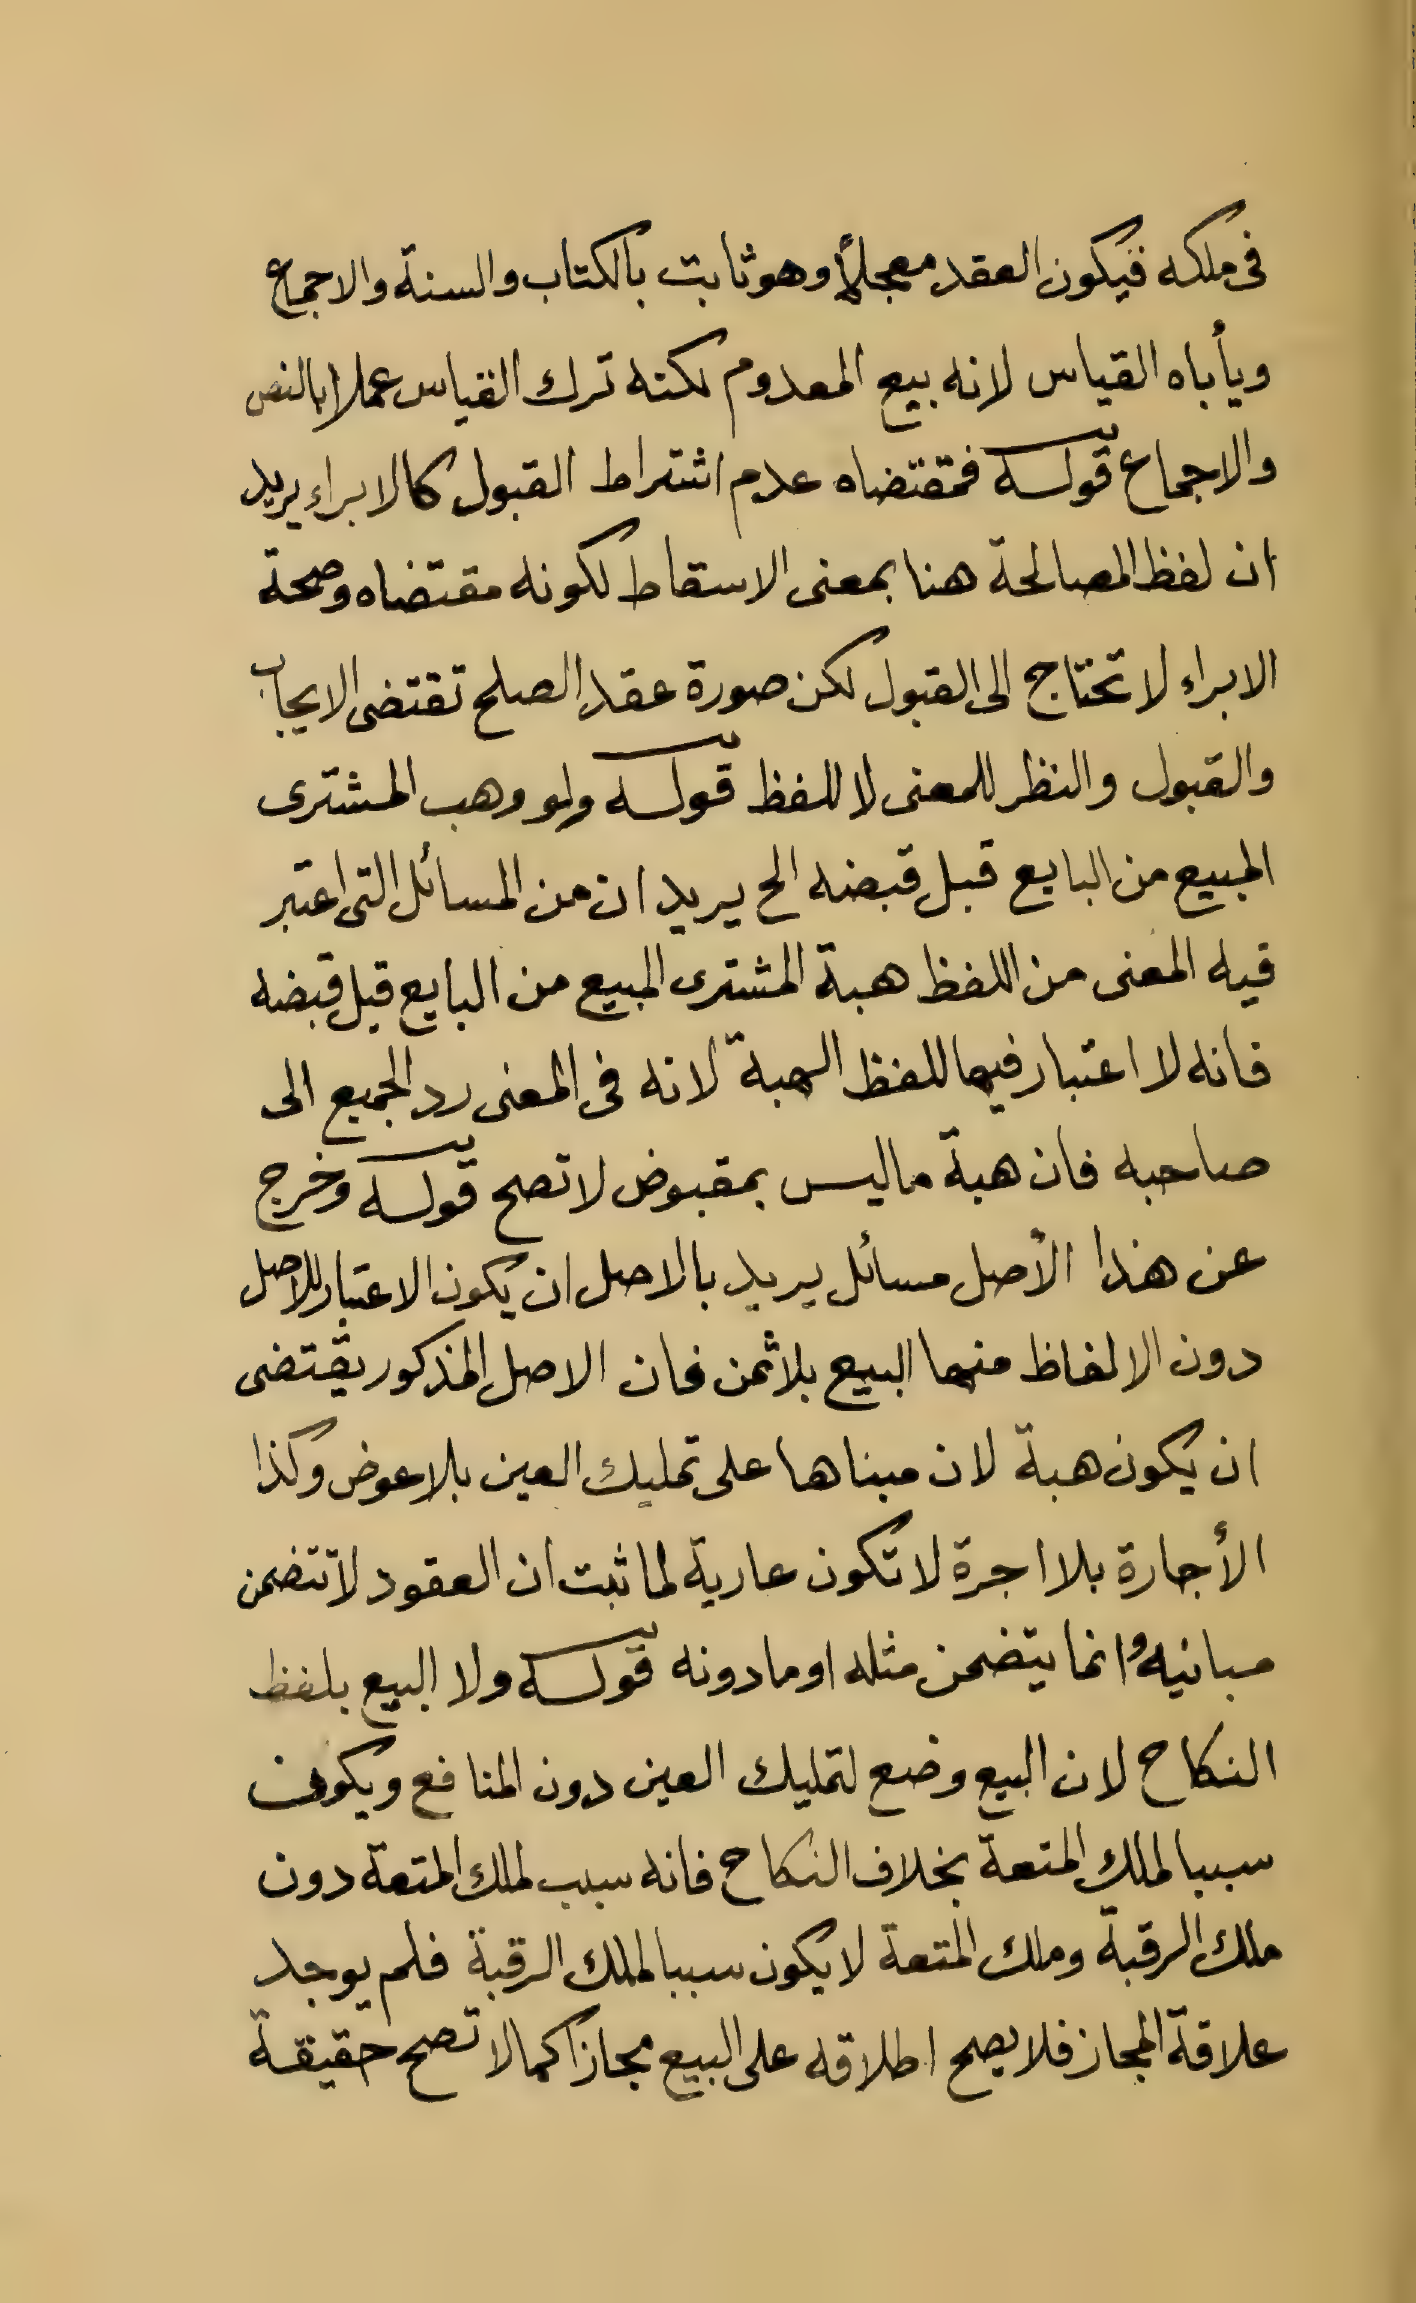 فى ملكه فيكون العقد معجلاً وهو ثابت بالكتاب والسنة والاجماع
ويأباه القياس لانه بيع المعدوم لكنه ترك القياس عملا بالنص
والاجماع قوله فمقتضاه عدم اشتراط القبول كالابراء يريد
ان لفظ المصالحة هنا بمعنى الاسقاط لكونه مقتضاه وصحة
الابراء لا تحتاج الى القبول لكن صورة عقد الصلح تقتضى الايجاب
والقبول والنظر للمعنى لا للفظ قوله ولو وهب المشترى
المبيع من البايع قبل قبضه الخ يريد ان من المسائل التى اعتبر
فيه المعنى من اللفظ هبة المشترى المبيع من البايع قبل قبضه
فانه لا اعتبار فيها للفظ الهبة لانه فى المعنى رد الجميع الى
صاحبه فان هبة ماليس بمقبوض لا تصح قوله وخرج
عن هذا الأصل مسائل يريد بالاصل ان يكون الاعتبار للاصل
دون الالفاظ منها البيع بلا ثمن فان الاصل المذكور يقتضى
ان يكون هبة لان مبناها على تمليك العين بلا عوض وكذا
الأجارة بلا اجرة لا تكون عارية لما ثبت ان العقود لا تتضمن
مبانيه وانما يتضمن مثله او ما دونه قوله ولا البيع بلفظ
النكاح لان البيع وضع لتمليك العين دون المنافع ويكون
سببا لملك المتعة بخلاف النكاح فانه سبب لملك المتعة دون
ملك الرقبة وملك المتعة لا يكون سببا لملك الرقبة فلم يوجد
علاقة المجاز فلا يصح اطلاقه على البيع مجازا كما لا تصح حقيقة